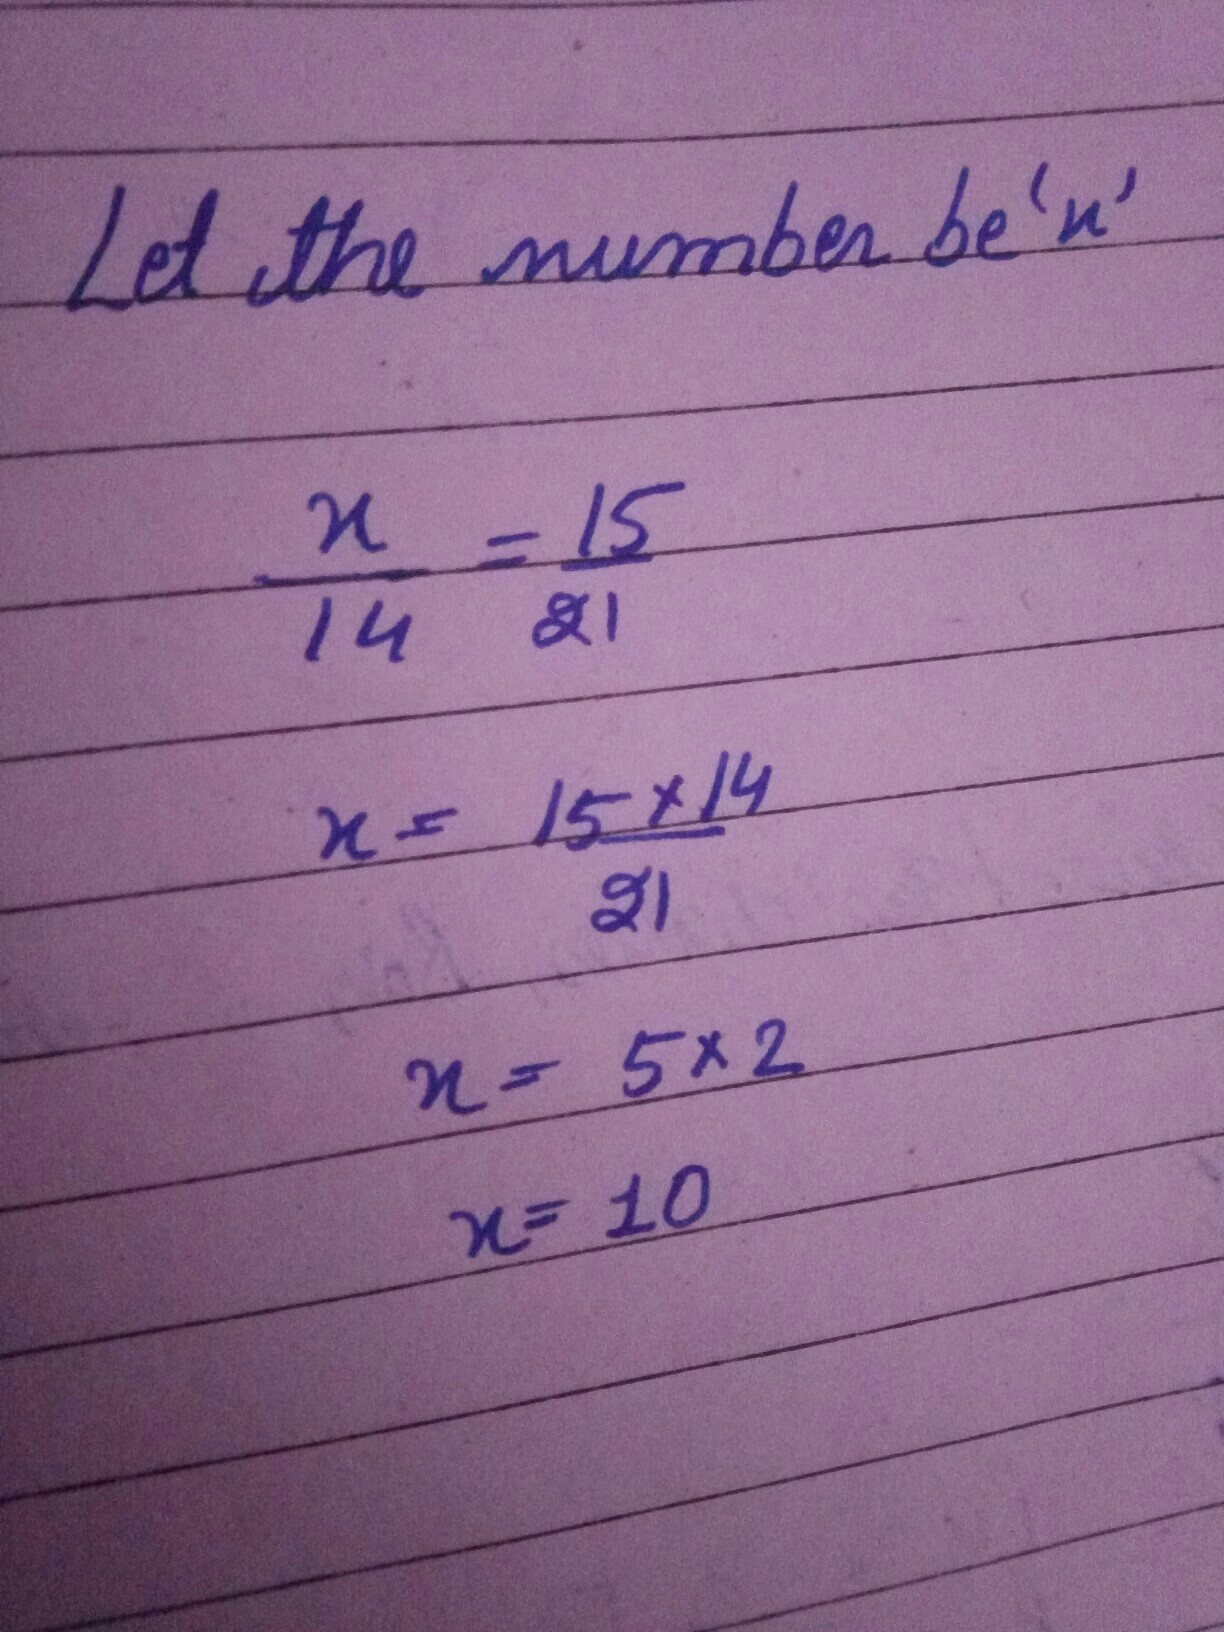 Let the number be 'x'
x/14 = 15/21
x = 15 × 14/21
x = 5 × 2
x = 10